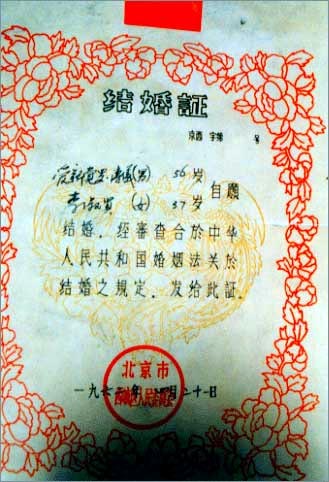 结婚証
京西 字第 号
溥儀(男) 56岁
李淑贤 (女) 37岁 自願
结婚，经審查合於中华
人民共和国婚姻法关於
结婚之规定，发给此証。
北京市
一九六 年 月二十一日